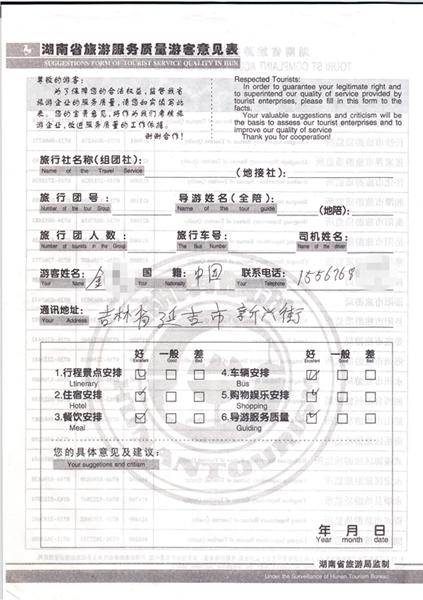 湖南省旅游服务质量游客意见表
SUGGESTIONS FORM OF TOURIST SERVICE QUALITY IN HUN
尊敬的游客:
为了保障您的合法权益,监督我省旅游企业的服务质量,请您如实填写此表。您的宝贵意见,将作为我们考核旅游企业,改进服务质量的工作依据。
谢谢合作!
Respected Tourists:
In order to guarantee your legitimate right and
to superintend our quality of service provided by
tourist enterprises, please fill in this form to the
facts.
Your valuable suggestions and criticism will be
the basis to assess our tourist enterprises and to
improve our quality of service
Thank you for cooperation!
旅行社名称(组团社): (地接社):
Name of the Travel Service
旅行团号: 导游姓名(全陪): (地陪):
Number of the tour Group Name of the tour guide
旅行团人数: 旅行车号: 司机姓名:
Number of tourists in the Group The Bus Number Name of the driver
游客姓名: 金 国籍: 中国 联系电话: 1556768
Your Name Your Nationality Your Telephone
通讯地址: 吉林省延吉市新兴街
Your Address
好 一般 差 好 一般 差
Excellent Good Bad Excellent Good Bad
1.行程景点安排 4.车辆安排
Ltinerary Bus
2.住宿安排 5.购物娱乐安排
Hotel Shopping
3.餐饮安排 6.导游服务质量
Meal Guiding
您的具体意见及建议:
Your suggetions and critiasm
年 月 日
Year month date
湖南省旅游局监制
Under the Surveillance of Hunan Tourism Bureau